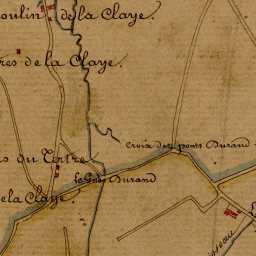 oulin de la Claye.
res de la Claye.
Croix des ponts Durand
du Tertre
Durand
de la Claye.
sseau